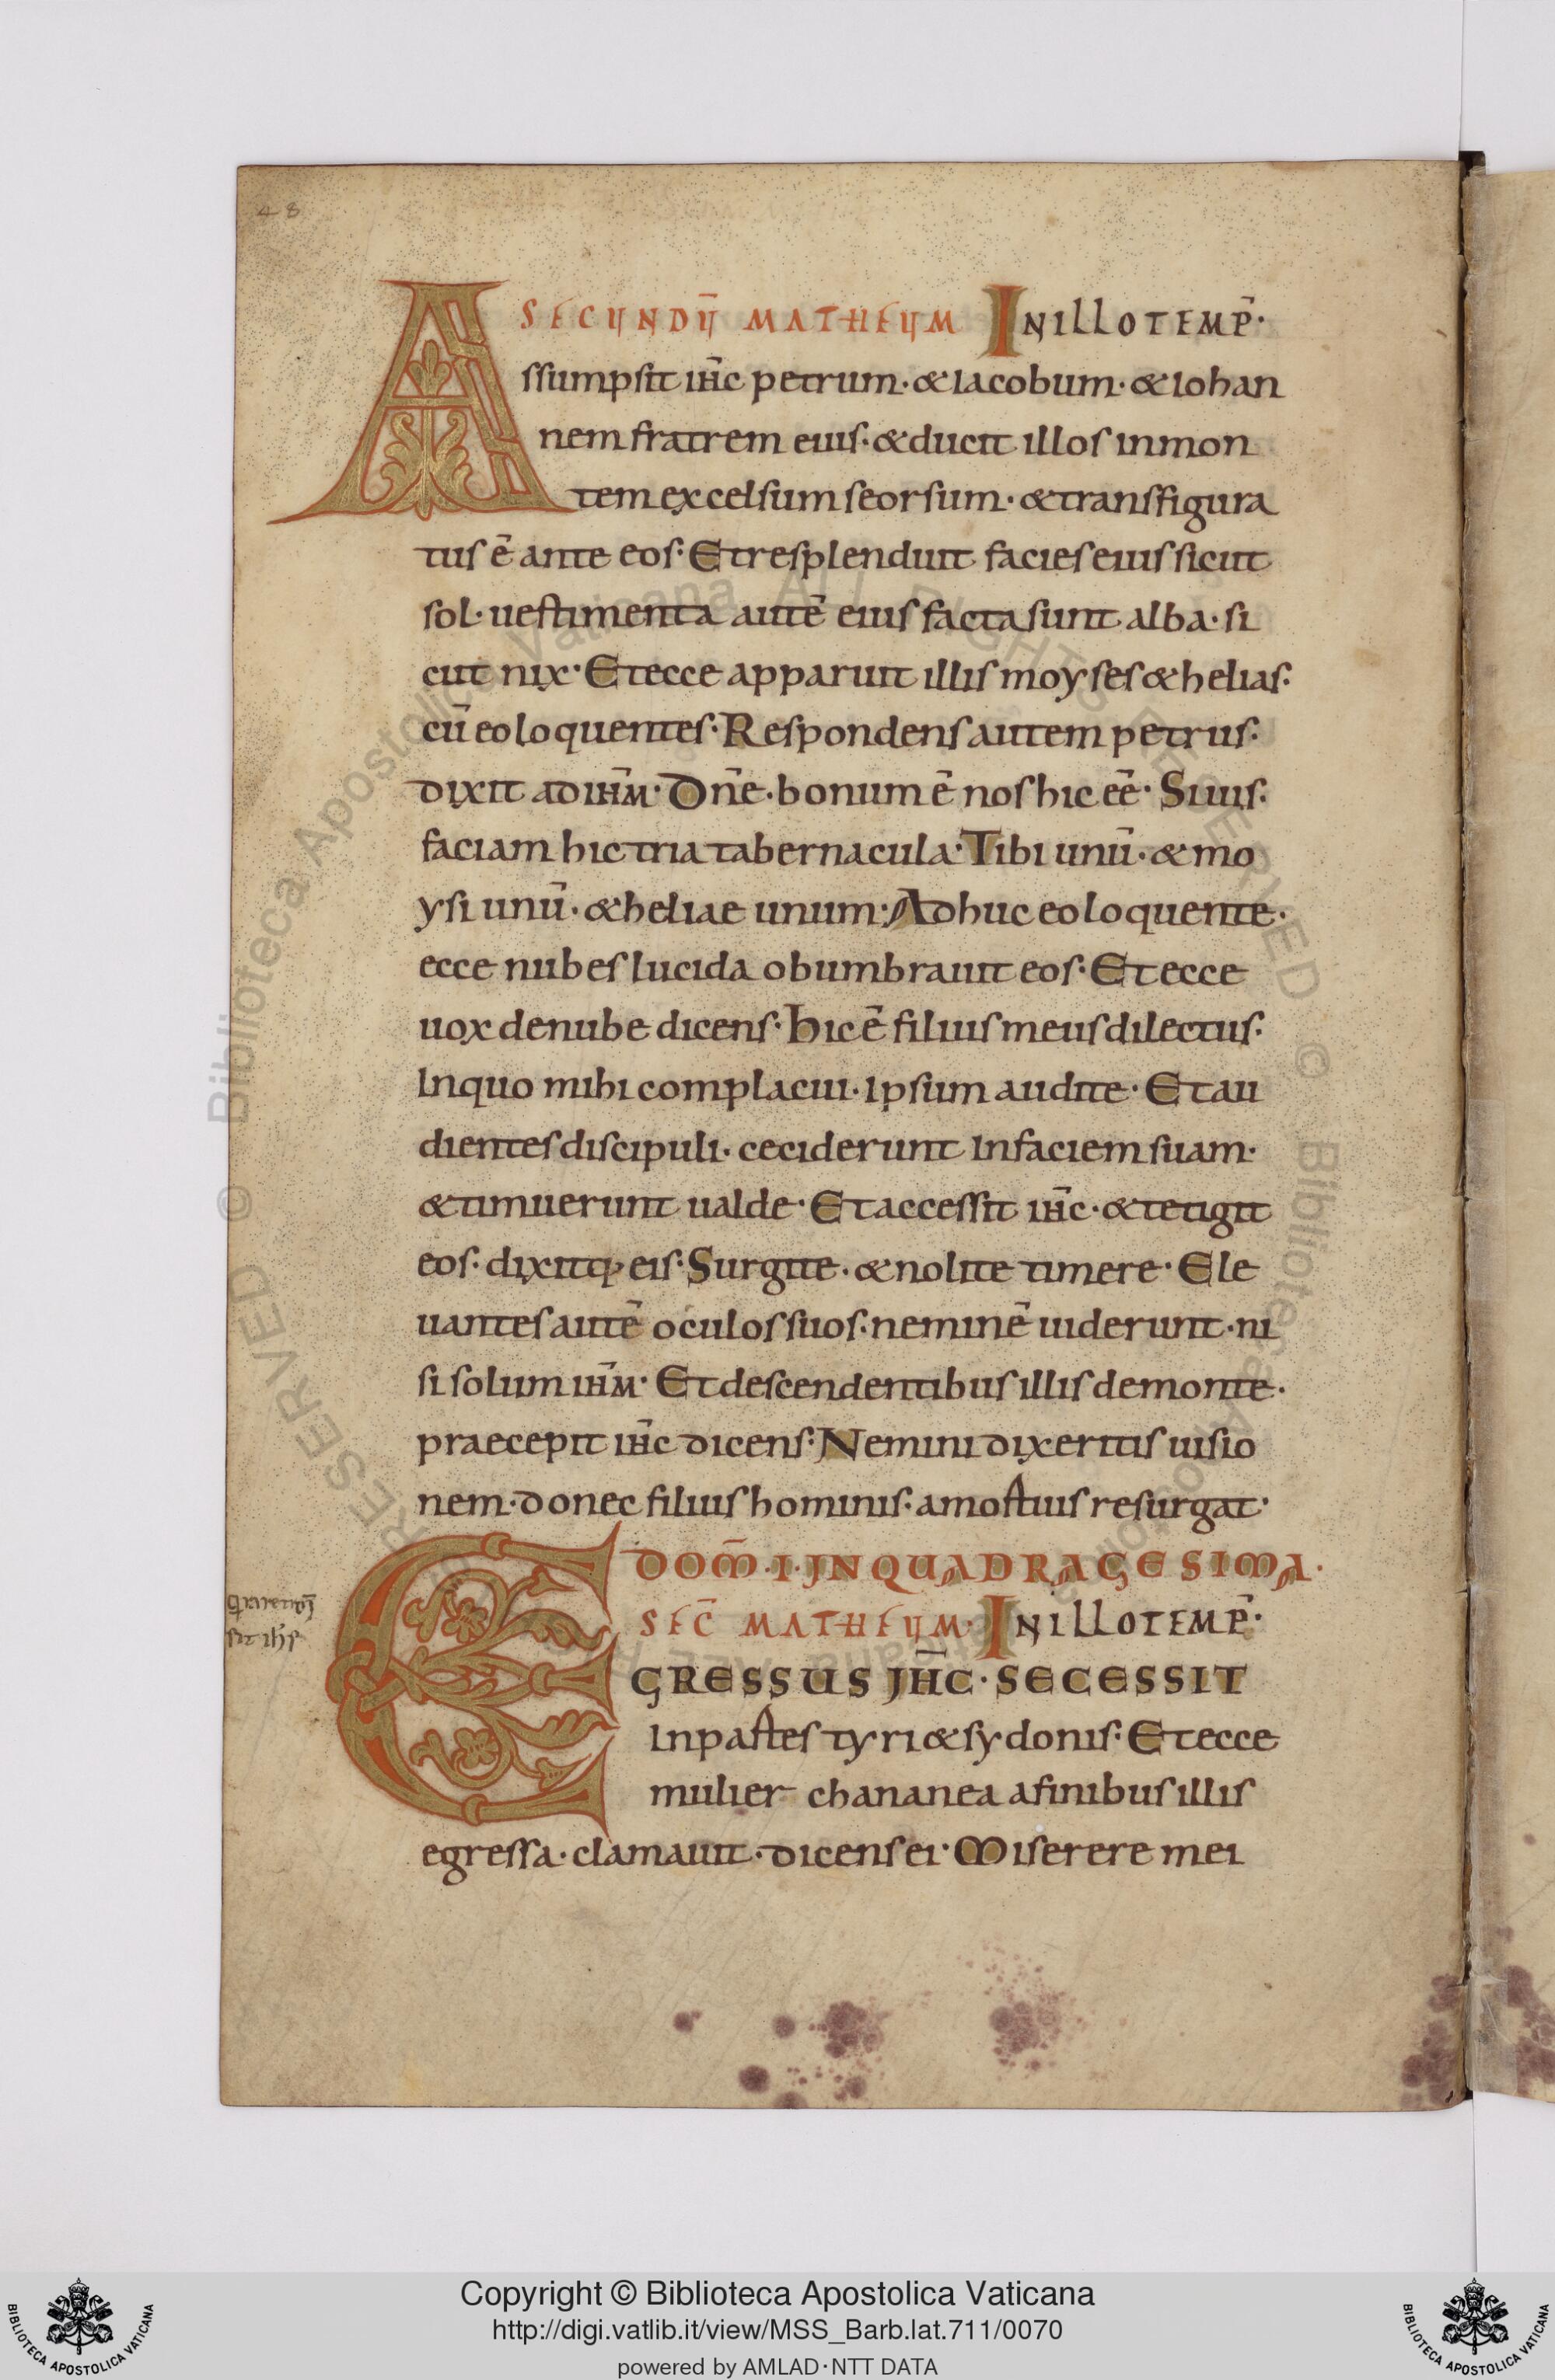 48
SECUNDŪ MATHEUM IN ILLO TEMP̄·
Assumpsit ih̄c petrum· & iacobum· & iohan
nem fratrem eius· & ducit illos in mon
tem excelsum seorsum· & transfigura
tus ē ante eos· Et resplenduit facies eius sicut
sol· uestimenta autē eius facta sunt alba· si
cut nix· Et ecce apparuit illis moyses & helias·
cū eo loquentes· Respondens autem petrus·
dixit ad ih̄m· Dn̄e· bonum ē nos hic eē· Si uis·
faciam hic tria tabernacula· Tibi unū· & mo
ysi unū· & heliae unum· Adhuc eo loquente·
ecce nubes lucida obumbrauit eos· Et ecce
uox de nube dicens· Hic ē filius meus dilectus·
In quo mihi complacui· Ipsum audite· Et au
dientes discipuli· ceciderunt In faciem suam·
& timuerunt ualde· Et accessit ih̄c· & tetigit
eos· dixitq; eis· Surgite· & nolite timere· Ele
uantes autē oculos suos· neminē uiderunt· ni
si solum ih̄m· Et descendentibus illis de monte·
praecepit ih̄c dicens· Nemini dixeritis uisio
nem· donec filius hominis· a mortuis resurgat·
DOM̄· I· IN QUADRAGESIMA·
SEC̄ MATHEUM· IN ILLO TEMP̄·
EGRESSUS IH̄C· SECESSIT
In partes tyri & sydonis· Et ecce
mulier chananea a finibus illis
egressa· clamauit· dicens ei· Miserere mei
Copyright © Biblioteca Apostolica Vaticana
http://digi.vatlib.it/view/MSS_Barb.lat.711/0070
powered by AMLAD·NTT DATA
BIBLIOTECA APOSTOLICA VATICANA
BIBLIOTECA APOSTOLICA VATICANA